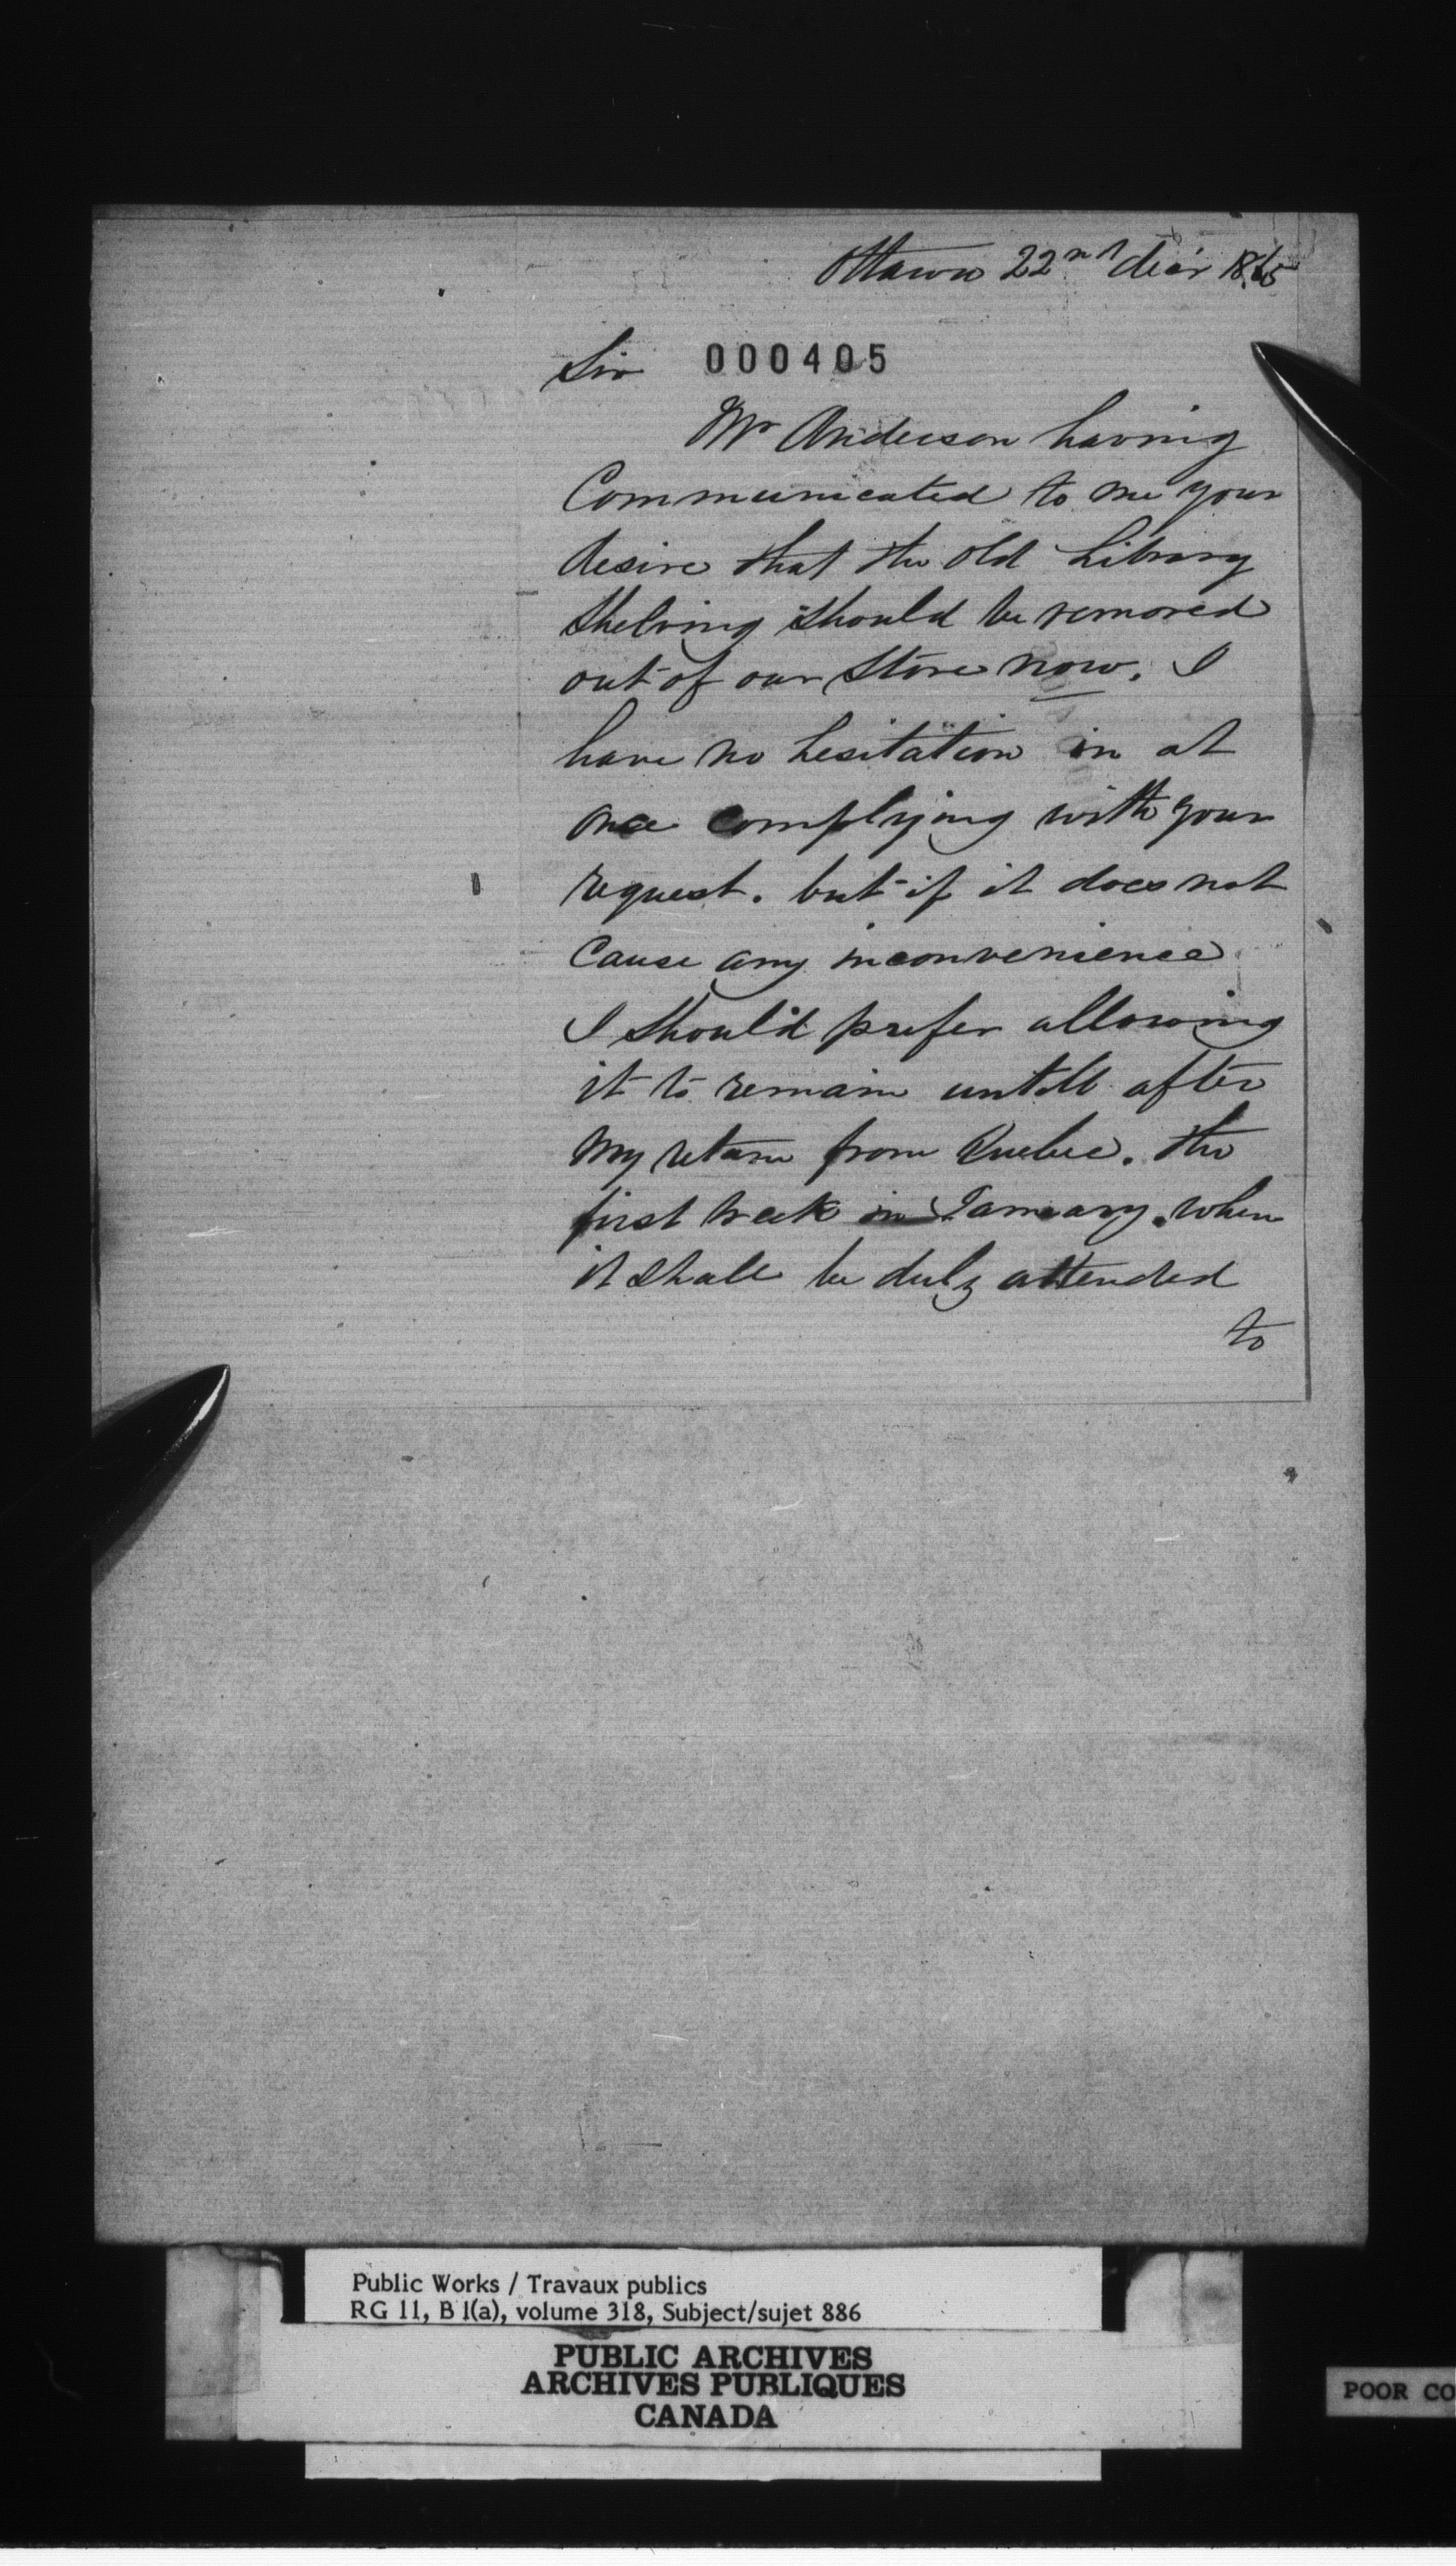 Ottawa 22nd Decr 1865
Sir 000405
Mr Anderson having
Communicated to me your
desire that the old Library
Shelving should be removed
out of our Store now, I
have no hesitation in at
once complying with your
request. but if it does not
Cause any inconvenience
I should prefer allowing
it to remain untill after
my return from Quebec. the
first week in January. when
it shall be duly attended
to
Public Works / Travaux publics
RG 11, B 1(a), volume 318, Subject/sujet 886
PUBLIC ARCHIVES
ARCHIVES PUBLIQUES
CANADA
POOR CO